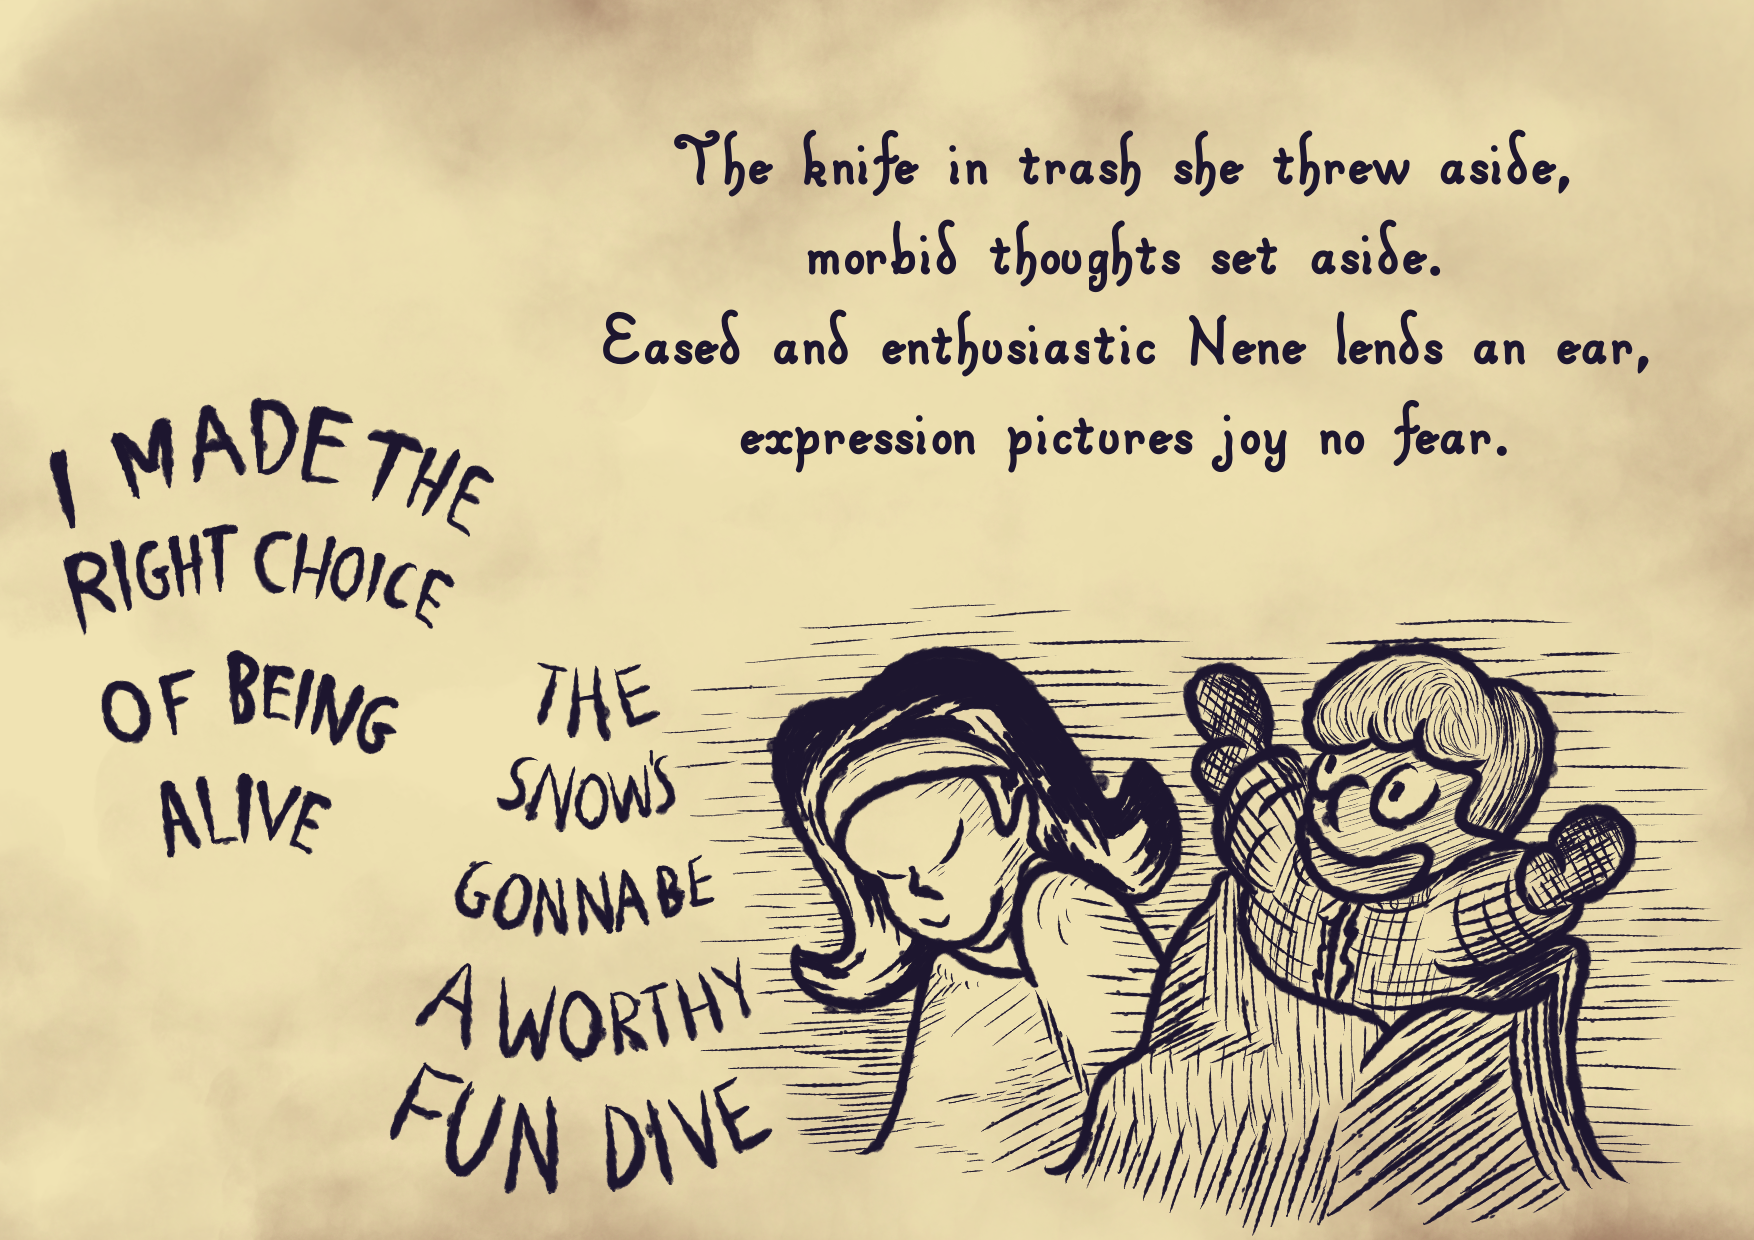 The knife in trash she threw aside,
morbid thoughts set aside.
Eased and enthusiastic Nene lends an ear,
expression pictures joy no fear.
I MADE THE
RIGHT CHOICE
OF BEING
ALIVE
THE
SNOW'S
GONNA BE
A WORTHY
FUN DIVE